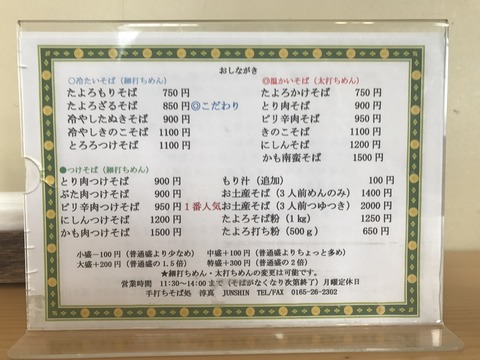 おしながき
○冷たいそば（細打ちめん）
たよろもりそば 750円
たよろざるそば 850円 ◎こだわり
冷やしたぬきそば 900円
冷やしきのこそば 1100円
とろろつけそば 1100円
◎温かいそば（太打ちめん）
たよろかけそば 750円
とり肉そば 900円
ピリ辛肉そば 950円
きのこそば 1100円
にしんそば 1200円
かも南蛮そば 1500円
●つけそば（細打ちめん）
とり肉つけそば 900円
ぶた肉つけそば 900円
ピリ辛肉つけそば 950円 1番人気
にしんつけそば 1200円
かも肉つけそば 1500円
もり汁（追加） 100円
お土産そば（3人前めんのみ） 1400円
お土産そば（3人前つゆつき） 2000円
たよろそば粉（1kg） 1250円
たよろ打ち粉（500g） 650円
小盛－100円（普通盛より少なめ） 中盛＋100円（普通盛よりちょっと多め）
大盛＋200円（普通盛の1.5倍） 特盛＋300円（普通盛の2倍）
★細打ちめん・太打ちめんの変更は可能です。
営業時間 11:30～14:00まで（そばがなくなり次第終了）月曜定休日
手打ちそば処 淳真 JUNSHIN TEL/FAX 0165-26-2302